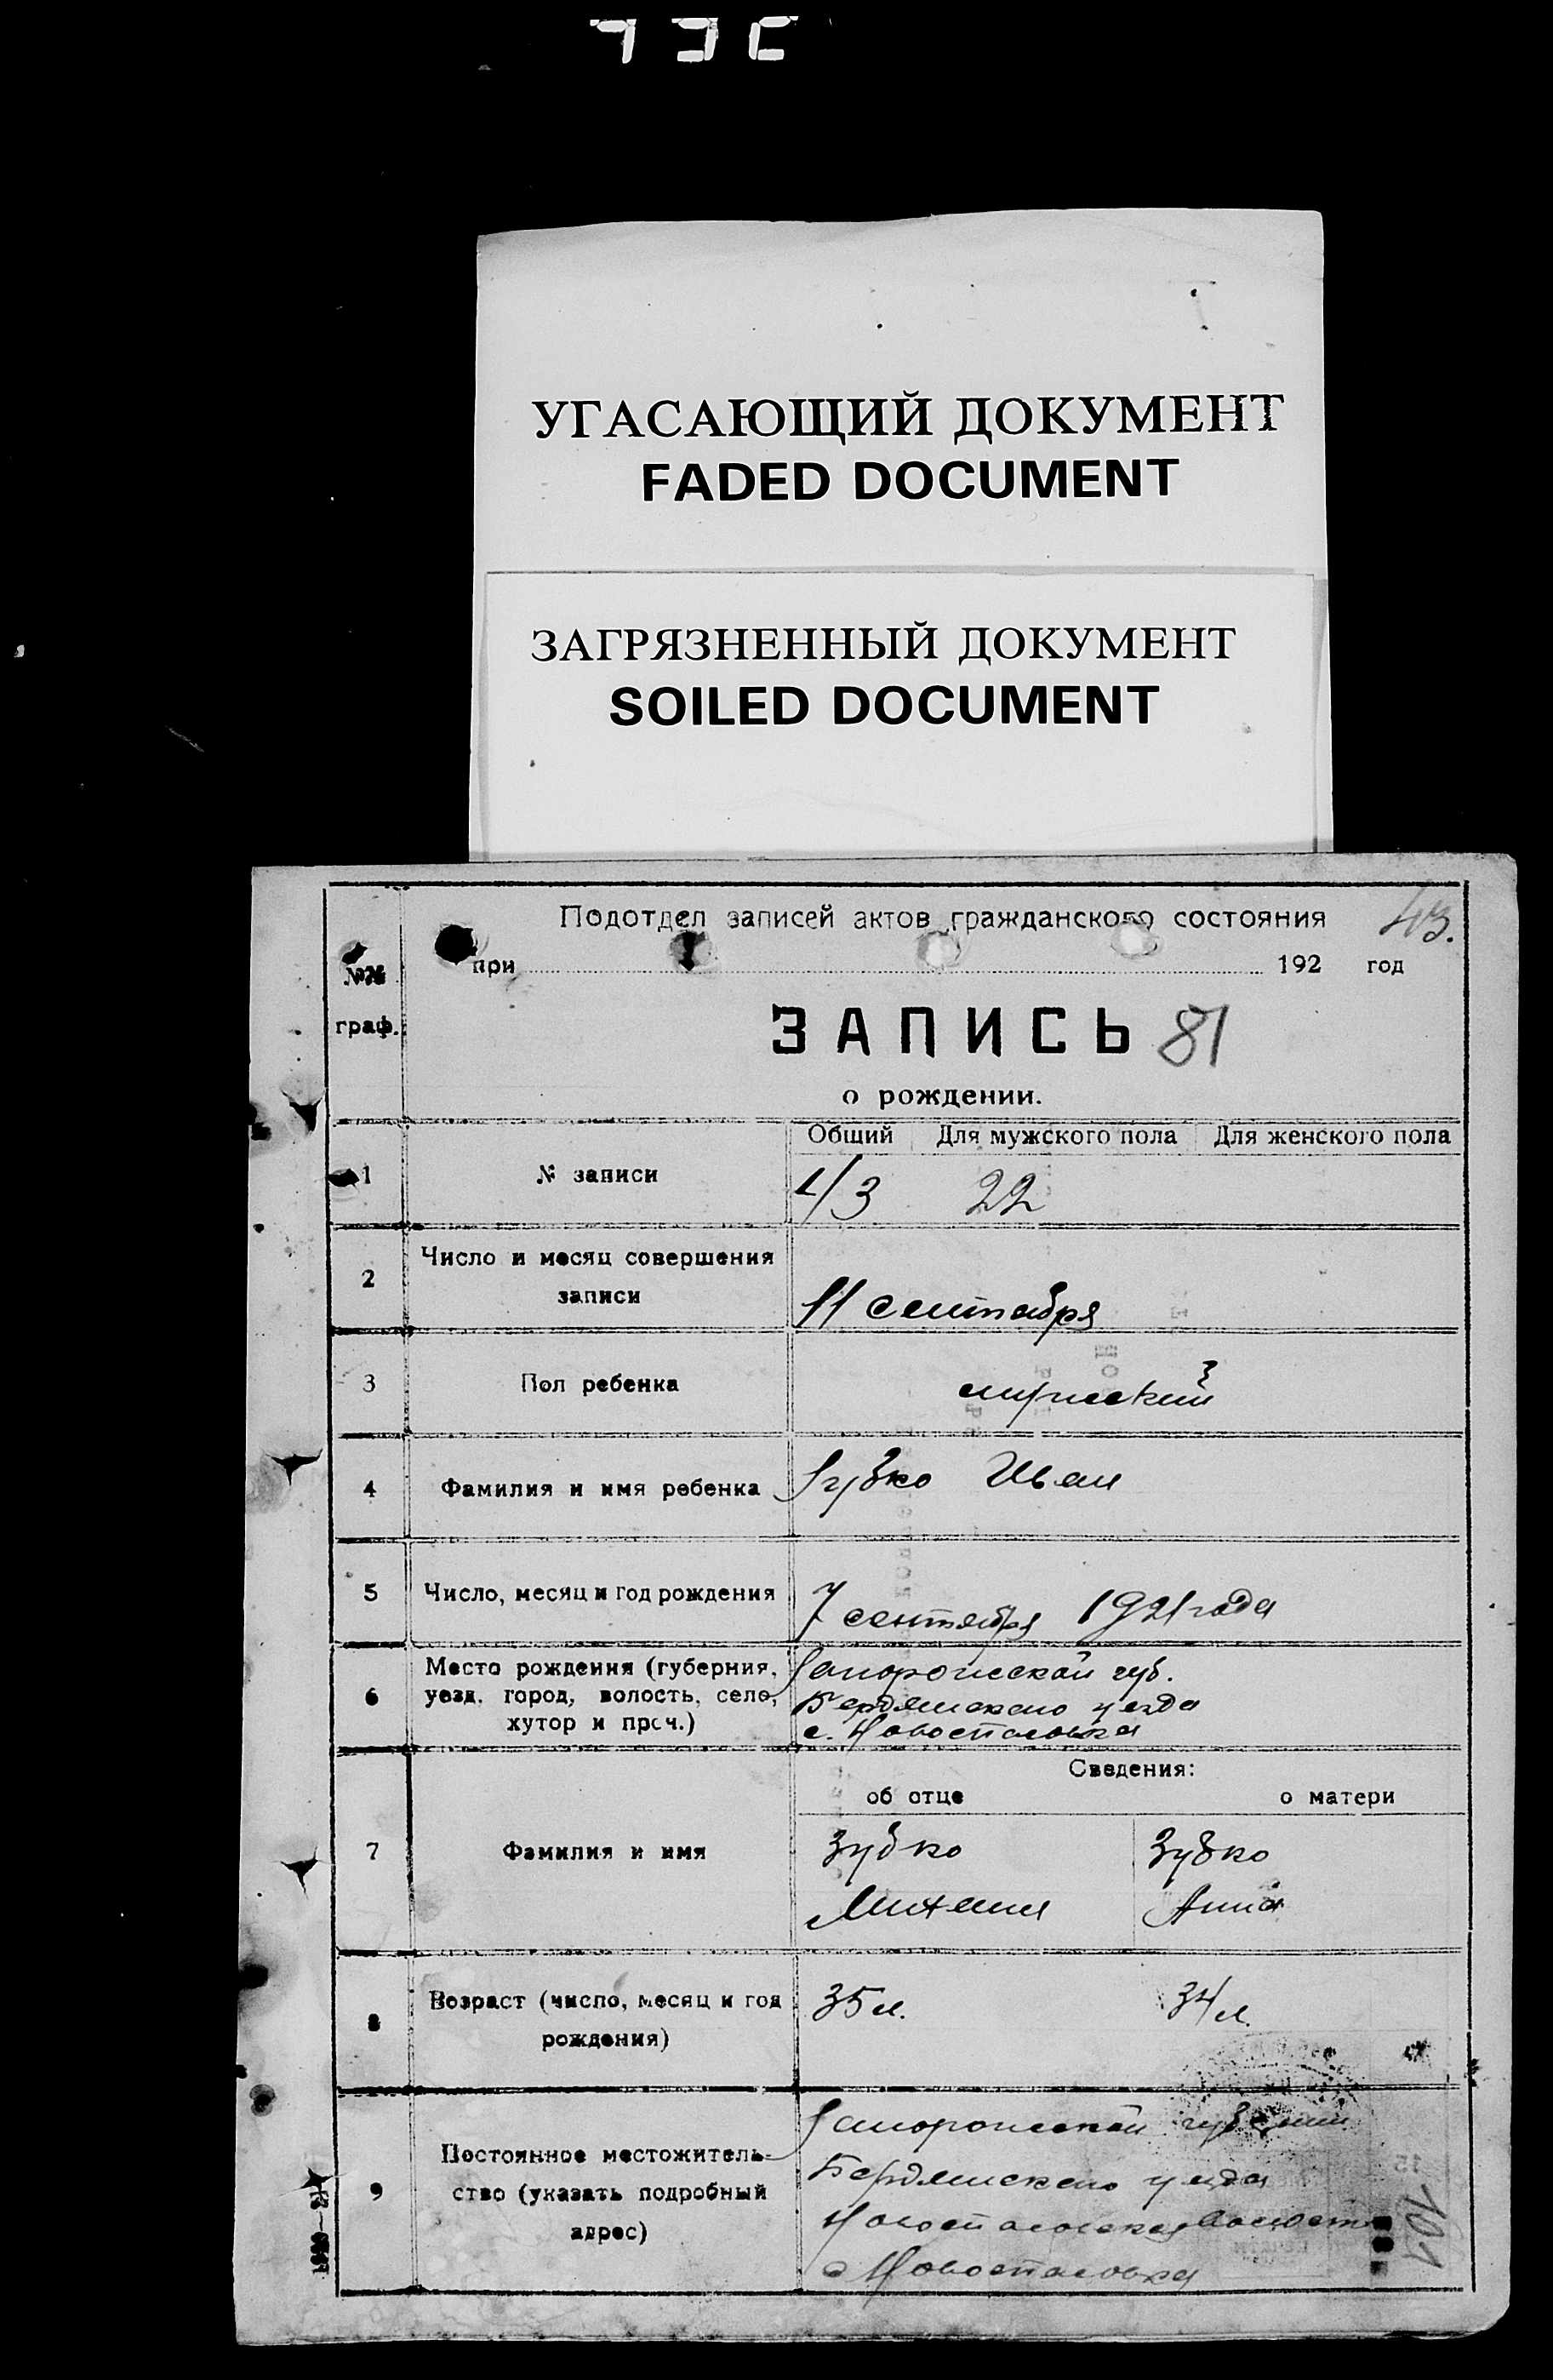 УГАСАЮЩИЙ ДОКУМЕНТ
FADED DOCUMENT
ЗАГРЯЗНЕННЫЙ ДОКУМЕНТ
SOILED DOCUMENT
Подотдел записей актов гражданского состояния
43.
при 192 год
№№
граф.
ЗАПИСЬ 81
о рождении.
Общий Для мужского пола Для женского пола
1 № записи 43 22
2 Число и месяц совершения
записи
11 сентября
3 Пол ребенка мужский
4 Фамилия и имя ребенка Зубко Иван
5 Число, месяц и год рождения 7 сентября 1921 года
6 Место рождения (губерния,
уезд, город, волость, село,
хутор и проч.)
Запорожской губ.
Бердянского уезда
с. Новоспасовка
Сведения:
об отце о матери
7 Фамилия и имя
Зубко Зубко
Михаил Анна
8 Возраст (число, месяц и год
рождения)
35 л. 34 л.
9 Постоянное местожитель-
ство (указать подробный
адрес)
Запорожской губернии
Бердянского уезда
Новоспасовская волость
с Новоспасовка
101